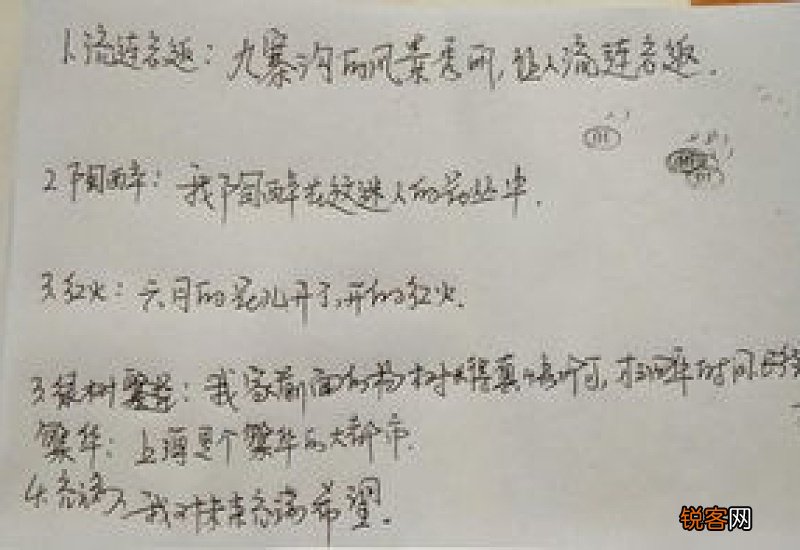 1.流连忘返：九寨沟的风景秀丽,让人流连忘返.
2.陶醉：我陶醉在这迷人的景色中.
3.红火：六月的花儿开了,开的红火.
3.绿树 我家前面的杨树长得真 时间
繁华：上海是个繁华的大都市.
4.充满 我对未来充满希望.
锐客网